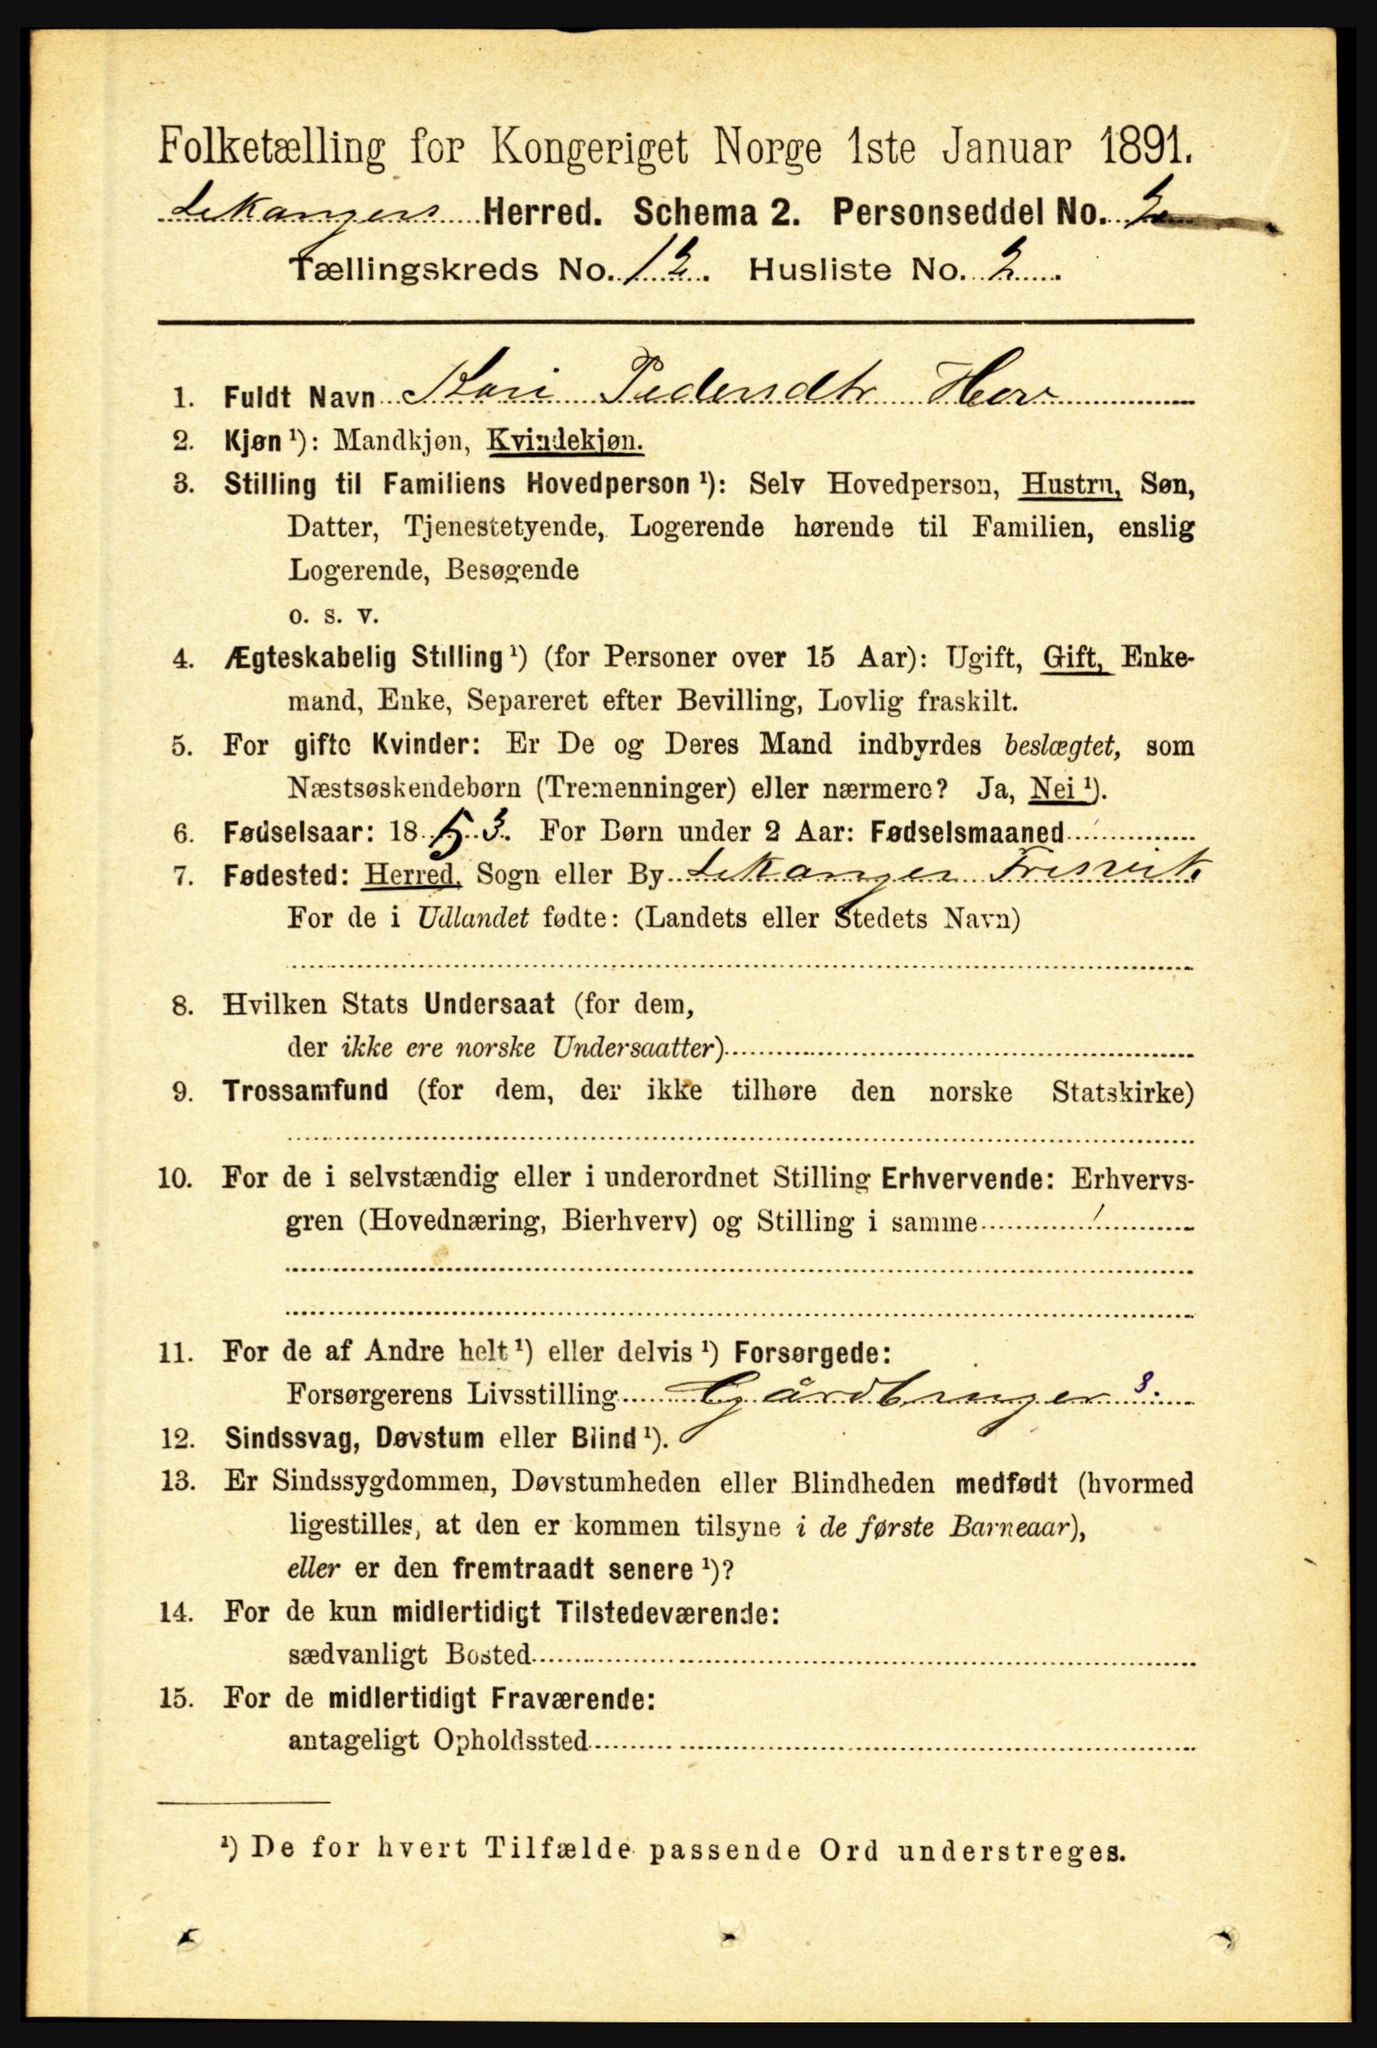 Folketælling for Kongeriget Norge 1ste Januar 1891.
Lekangers Herred. Schema 2. Personseddel No. 2
Tællingskreds No. 12. Husliste No. 2.
1. Fuldt Navn Kari Pedersdtr Hov
2. Kjøn ¹): Mandkjøn, Kvindekjøn.
3. Stilling til Familiens Hovedperson ¹): Selv Hovedperson, Hustru, Søn,
Datter, Tjenestetyende, Logerende hørende til Familien, enslig
Logerende, Besøgende
o. s. v.
4. Ægteskabelig Stilling ¹) (for Personer over 15 Aar): Ugift, Gift, Enke-
mand, Enke, Separeret efter Bevilling, Lovlig fraskilt.
5. For gifte Kvinder: Er De og Deres Mand indbyrdes beslægtet, som
Næstsøskendebørn (Tremenninger) eller nærmere? Ja, Nei ¹).
6. Fødselsaar: 1853. For Børn under 2 Aar: Fødselsmaaned
7. Fødested: Herred, Sogn eller By Lekanger Fresvik
For de i Udlandet fødte: (Landets eller Stedets Navn)
8. Hvilken Stats Undersaat (for dem,
der ikke ere norske Undersaatter)
9. Trossamfund (for dem, der ikke tilhøre den norske Statskirke)
10. For de i selvstændig eller i underordnet Stilling Erhvervende: Erhvervs-
gren (Hovednæring, Bierhverv) og Stilling i samme
11. For de af Andre helt ¹) eller delvis ¹) Forsørgede:
Forsørgerens Livsstilling Gårdbruger s.
12. Sindssvag, Døvstum eller Blind ¹).
13. Er Sindssygdommen, Døvstumheden eller Blindheden medfødt (hvormed
ligestilles, at den er kommen tilsyne i de første Barneaar),
eller er den fremtraadt senere ¹)?
14. For de kun midlertidigt Tilstedeværende:
sædvanligt Bosted
15. For de midlertidigt Fraværende:
antageligt Opholdssted
¹) De for hvert Tilfælde passende Ord understreges.